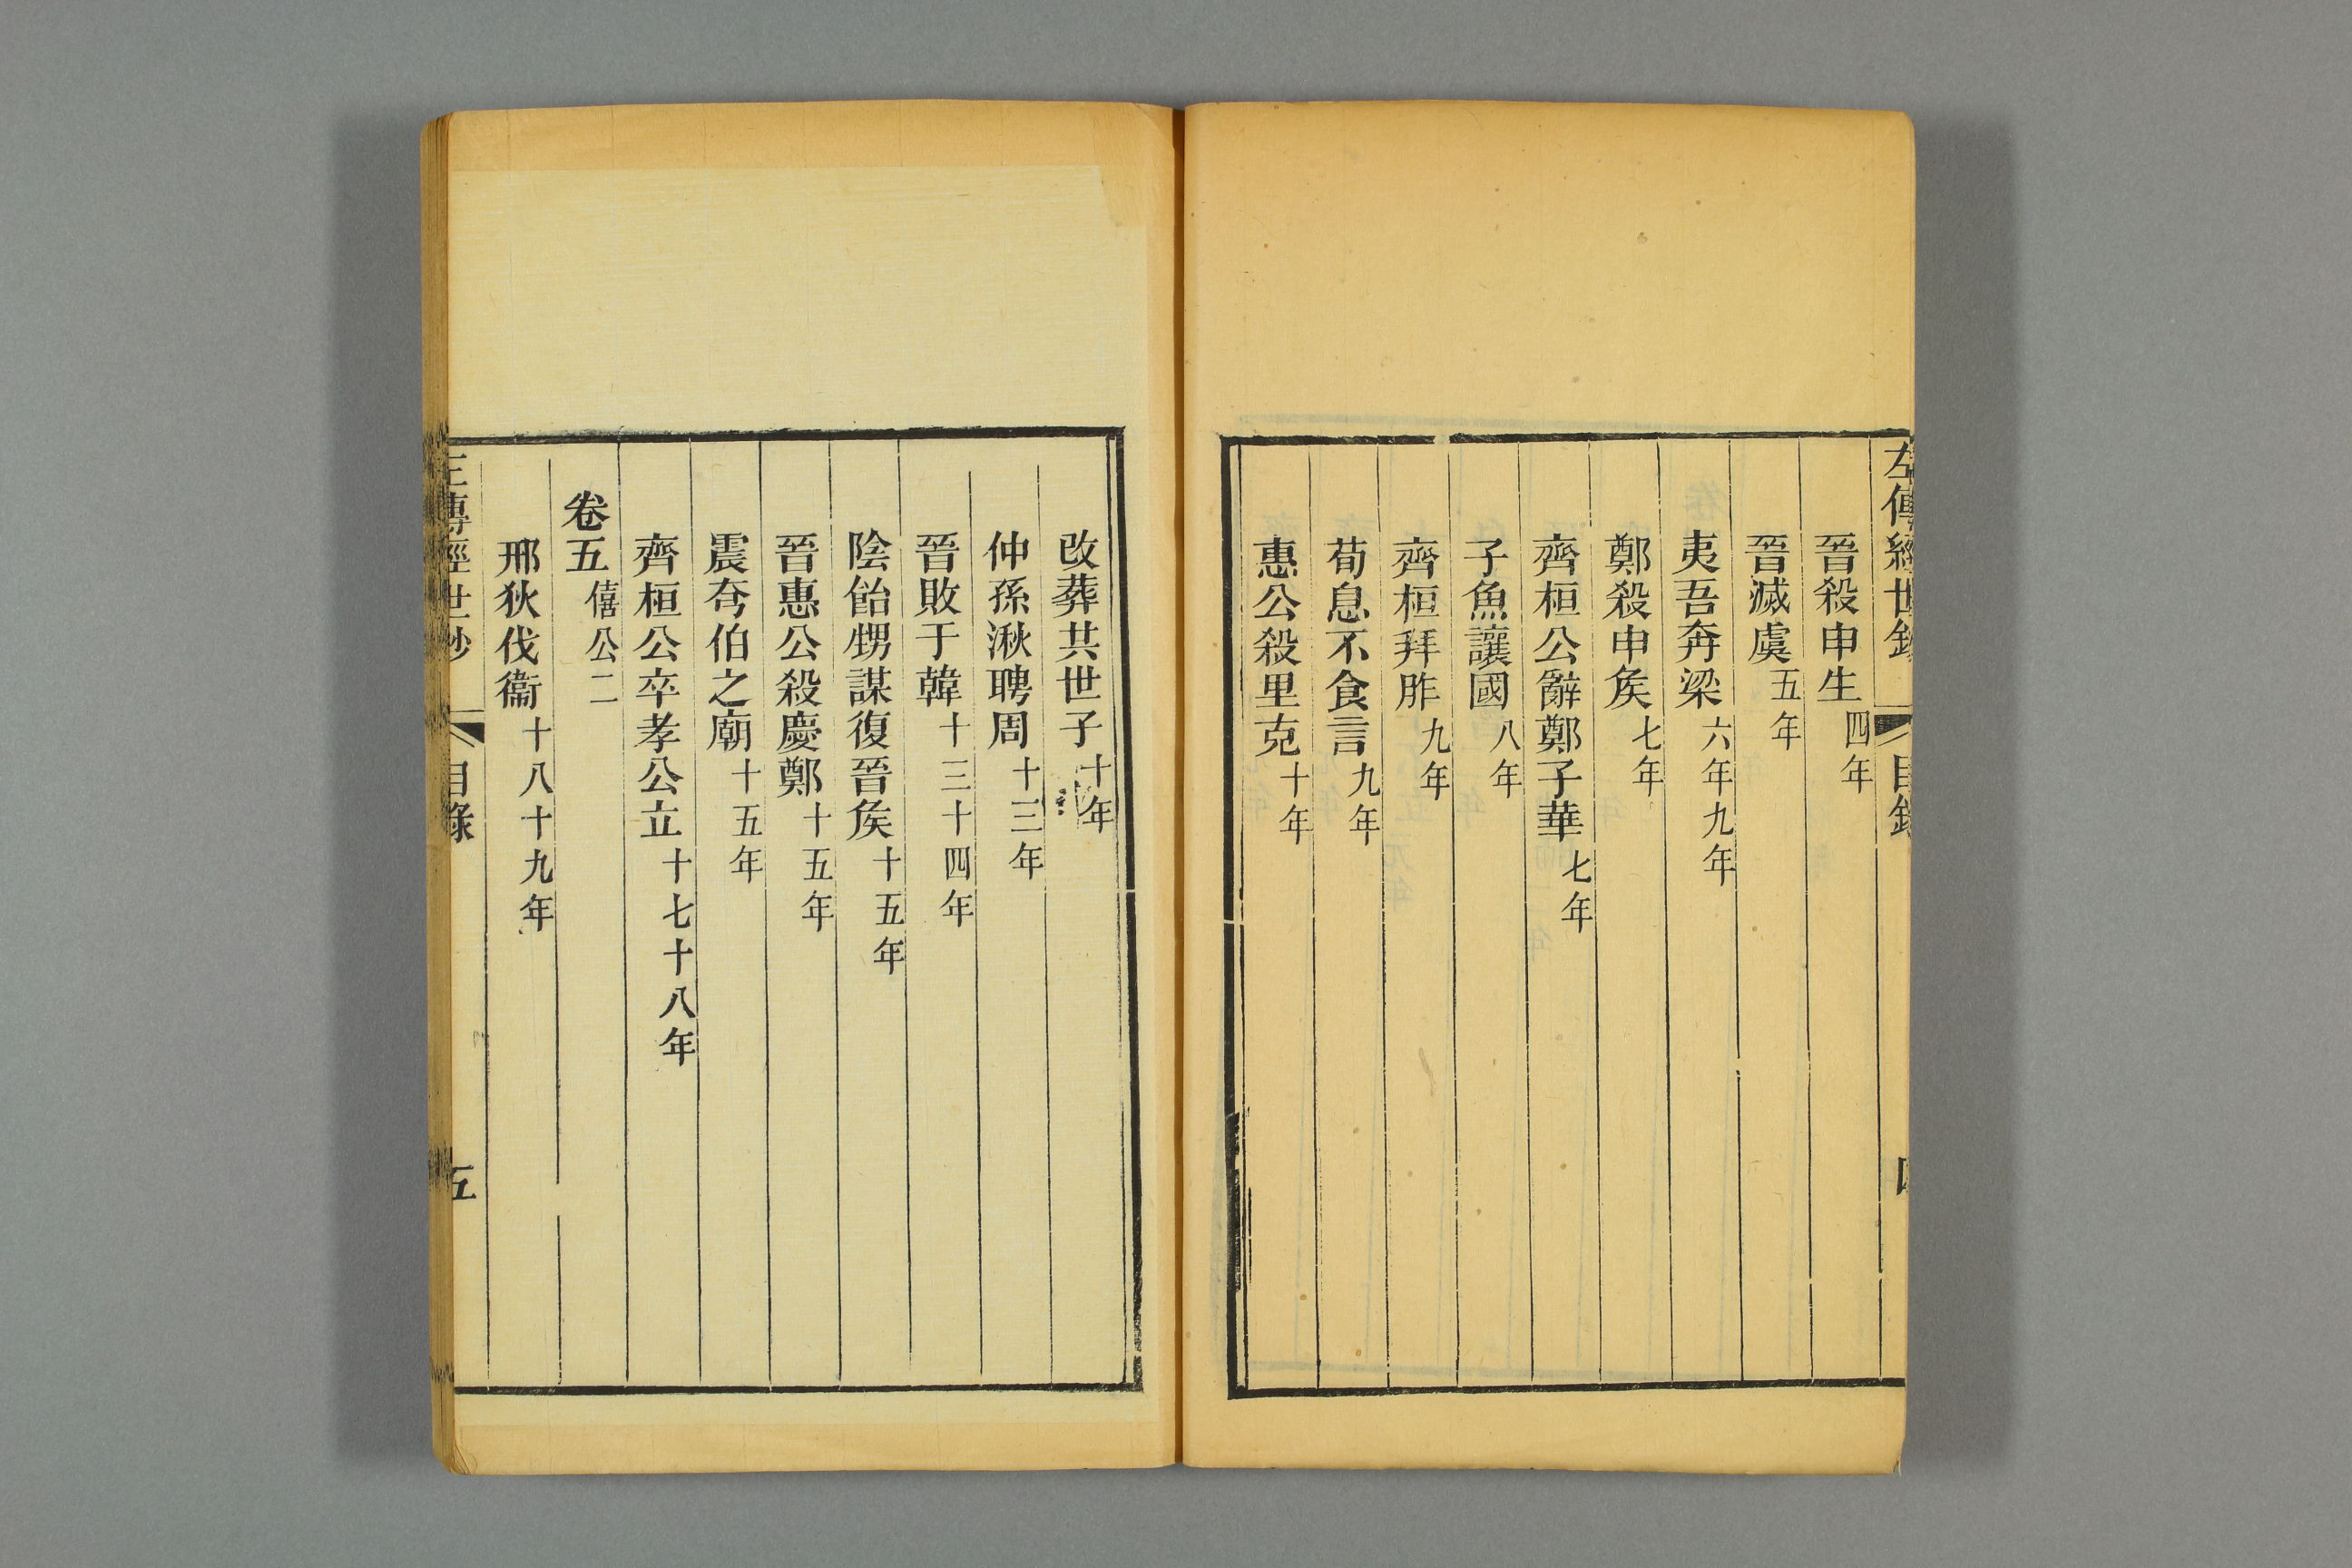 左傳經世鈔 目錄
晉殺申生四年
晉滅虞五年
夷吾奔梁六年九年
鄭殺申矦七年
齊桓公辭鄭子華七年
子魚讓國八年
齊桓拜胙九年
荀息不食言九年
惠公殺里克十年
改葬共世子十年
仲孫湫聘周十三年
晉敗于韓十三十四年
陰飴甥謀復晉矦十五年
晉惠公殺慶鄭十五年
震夸伯之廟十五年
齊桓公卒孝公立十七十八年
卷五僖公二
邢狄伐衞十八十九年
左傳經世鈔 目錄 五